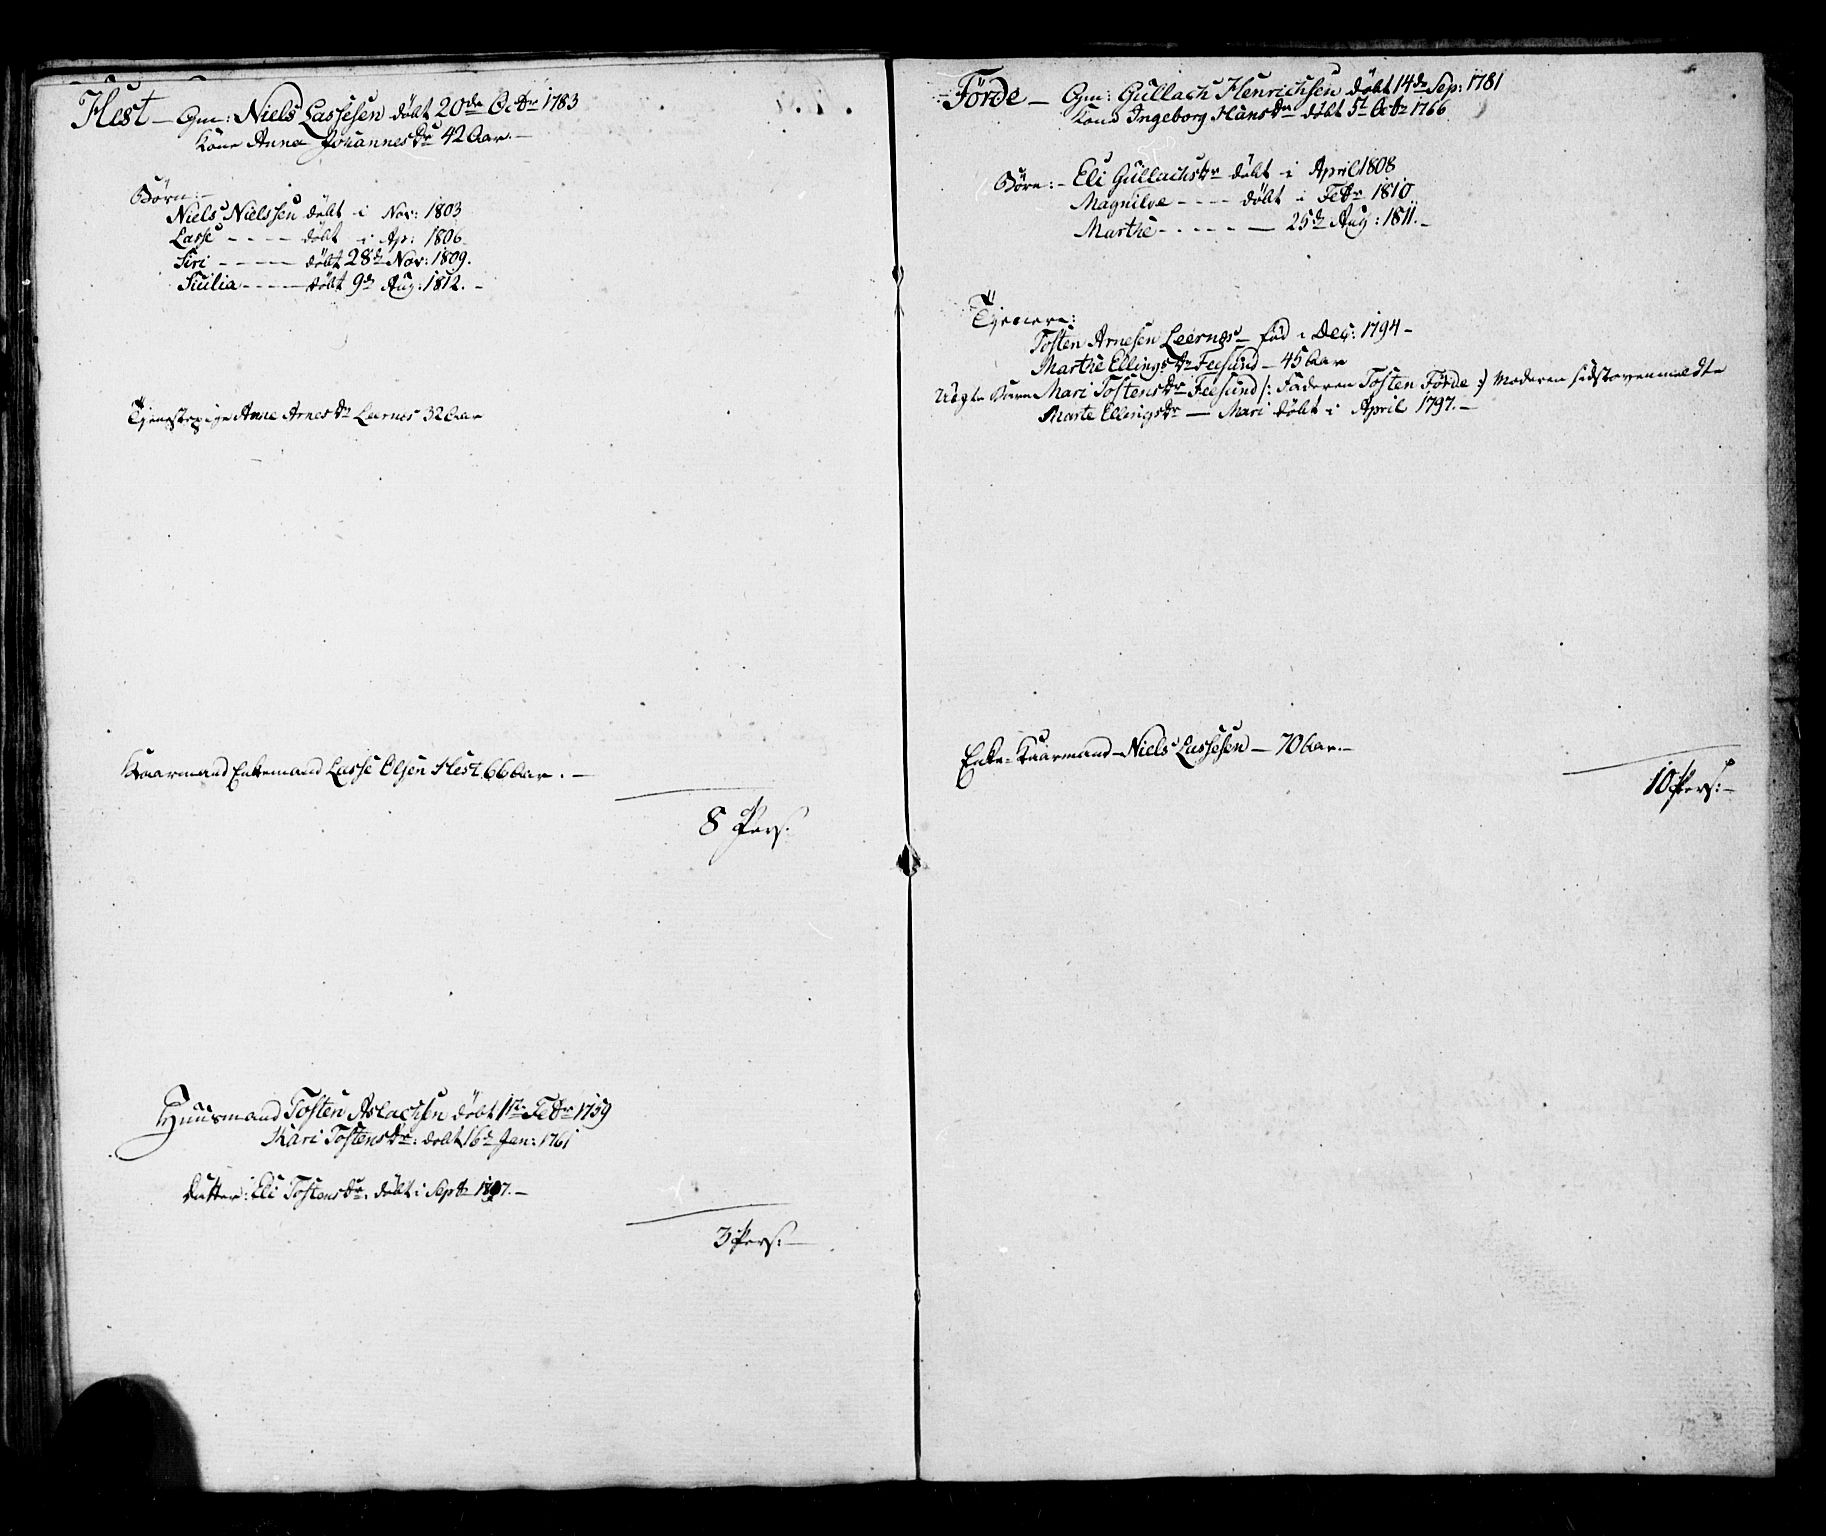 Hest — Gm: Niels Lassesen döbt 20de Octbr 1783
Kone Anna Johannesdr 42 Aar. —
Börn: —
Niels Nielssen döbt i Nov: 1803
Lasse - - - — döbt i Ap: 1806
Siri - - - — döbt 28de Nov: 1809.
Sicilia - - - — döbt 9de Aug: 1812. -
Tjenestepige Anne Arnesdr Leernes 32 Aar
Kaarmand Enkemand Lasse Olsen Hest 66 Aar. —
8 Pers.
Huusmand Tosten Aslachsen döbt 1ste Febr 1759
Kari Tostensdr: döbt 16de Jan: 1761
Datter: Eli Tostensdr. döbt i Septbr 1797. —
3 Pers: —
Förde — Gm: Gullach Henrichsen döbt 14de Sep: 1781
Kone Ingeborg Hansdr döbt 5t Octbr 1766
Börn: - Eli Gullachsdr döbt i April 1808
Magnilde - - - - döbt i Febr 1810
Marthe - - - - - — 25de Aug: 1811. -
Tjenere:
Tosten Arnesen Leernes — föd i Dec: 1794 -
Marthe Ellingsdr Feesund — 45 Aar
Uægte Barn Mari Tostensdr Feesund /: Faderen Tosten Förde :/ Moderen sidstovenmeldte
Marte Ellingsdr — Mari döbt i April 1797. —
Enke-Kaarmand Niels Lassesen — 70 Aar. —
10 Pers: —